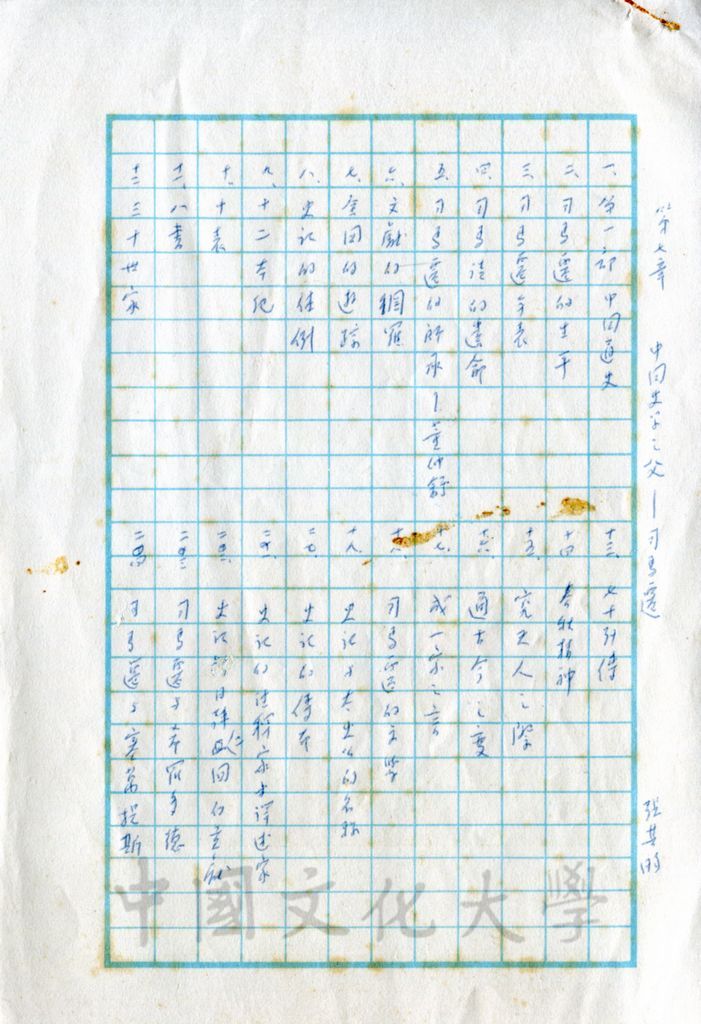 第七章 中国史学之父—司馬遷
張其昀
一、第一部中国通史
二、司馬遷的生平
三、司馬遷年表
四、司馬談的遺命
五、司馬遷的師承—董仲舒
六、文献的網羅
七、全国的遊踪
八、史記的体例
九、十二本紀
十、十表
十一、八書
十二、三十世家
十三、七十列傳
十四、春秋精神
十五、究天人之際
十六、通古今之變
十七、成一家之言
十八、司馬遷的文學
十九、史記与太史公的名称
二十、史記的傳本
二十一、史記的註釋家与評述家
二十二、史記對日韓 国的貢献
二十三、司馬遷与希羅多德
二十四、司馬遷与塞萬提斯
中國文化大學